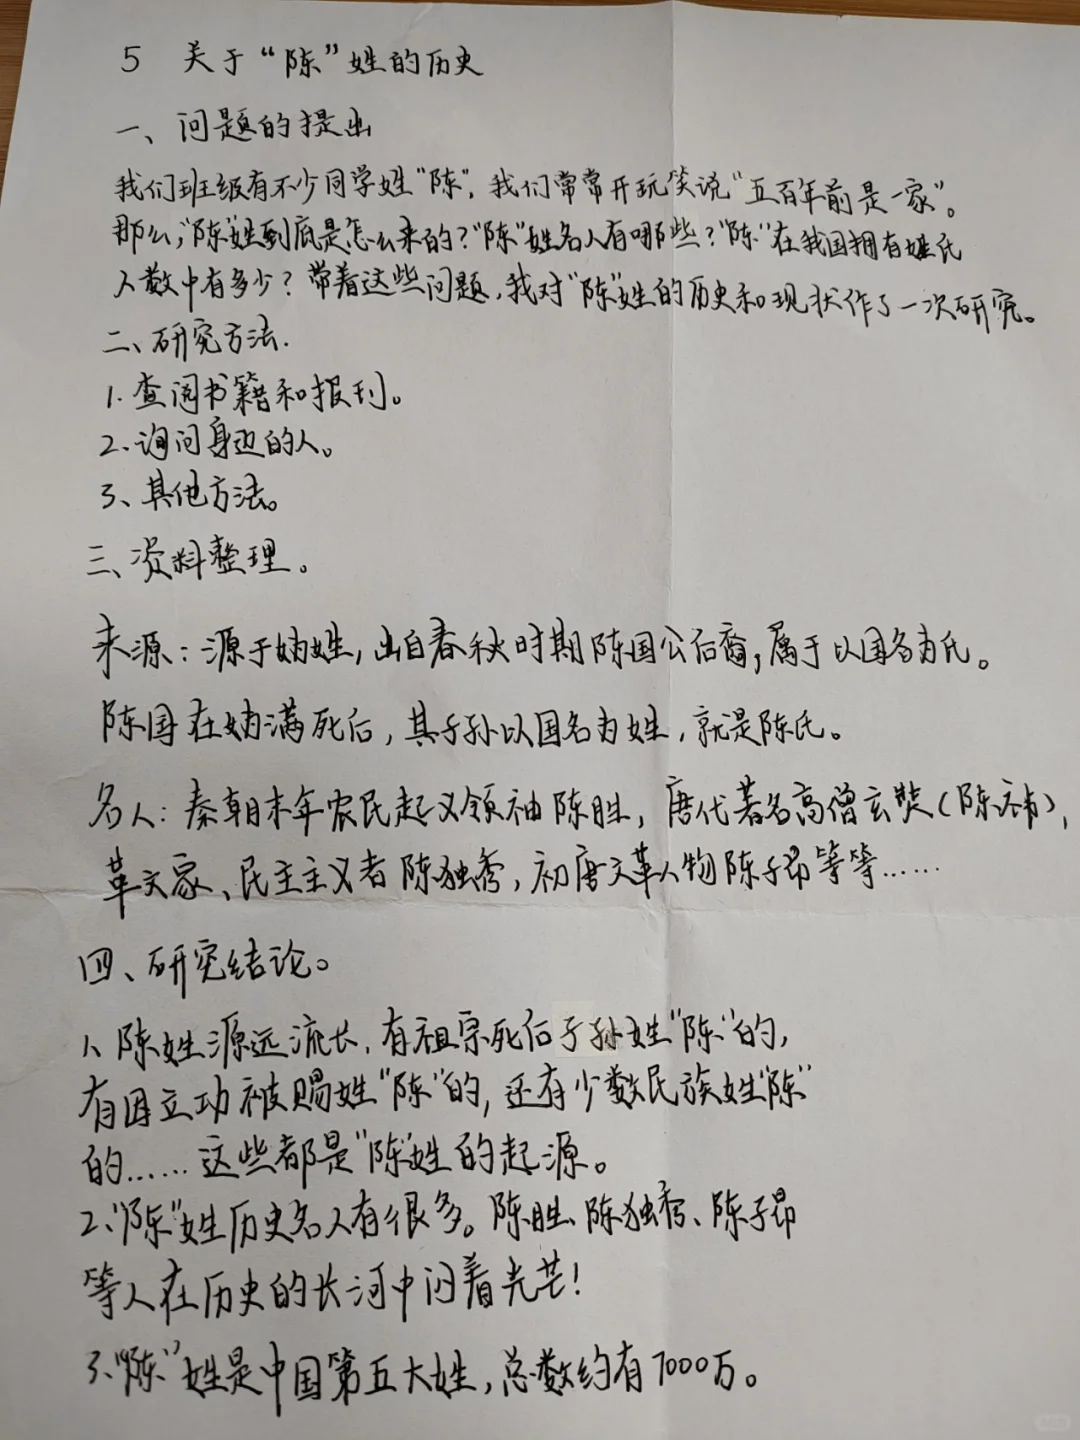 5 关于“陈”姓的历史
一、问题的提出
我们班级有不少同学姓“陈”，我们常常开玩笑说“五百年前是一家”。
那么，“陈”姓到底是怎么来的？“陈”姓名人有哪些？“陈”在我国拥有姓氏
人数中有多少？带着这些问题，我对“陈”姓的历史和现状作了一次研究。
二、研究方法.
1.查阅书籍和报刊。
2.询问身边的人。
3、其他方法。
三、资料整理。
来源：源于妫姓，出自春秋时期陈国公后裔，属于以国名为氏。
陈国在妫满死后，其子孙以国名为姓，就是陈氏。
名人：秦朝末年农民起义领袖陈胜，唐代著名高僧玄奘（陈祎），
革文家、民主主义者陈独秀，初唐文革人物陈子昂等等……
四、研究结论。
1、陈姓源远流长，有祖宗死后子孙姓“陈”的，
有因立功被赐姓“陈”的，还有少数民族姓“陈”
的……这些都是“陈”姓的起源。
2、“陈”姓历史名人有很多。陈胜、陈独秀、陈子昂
等人在历史的长河中闪着光芒！
3.“陈”姓是中国第五大姓，总数约有7000万。